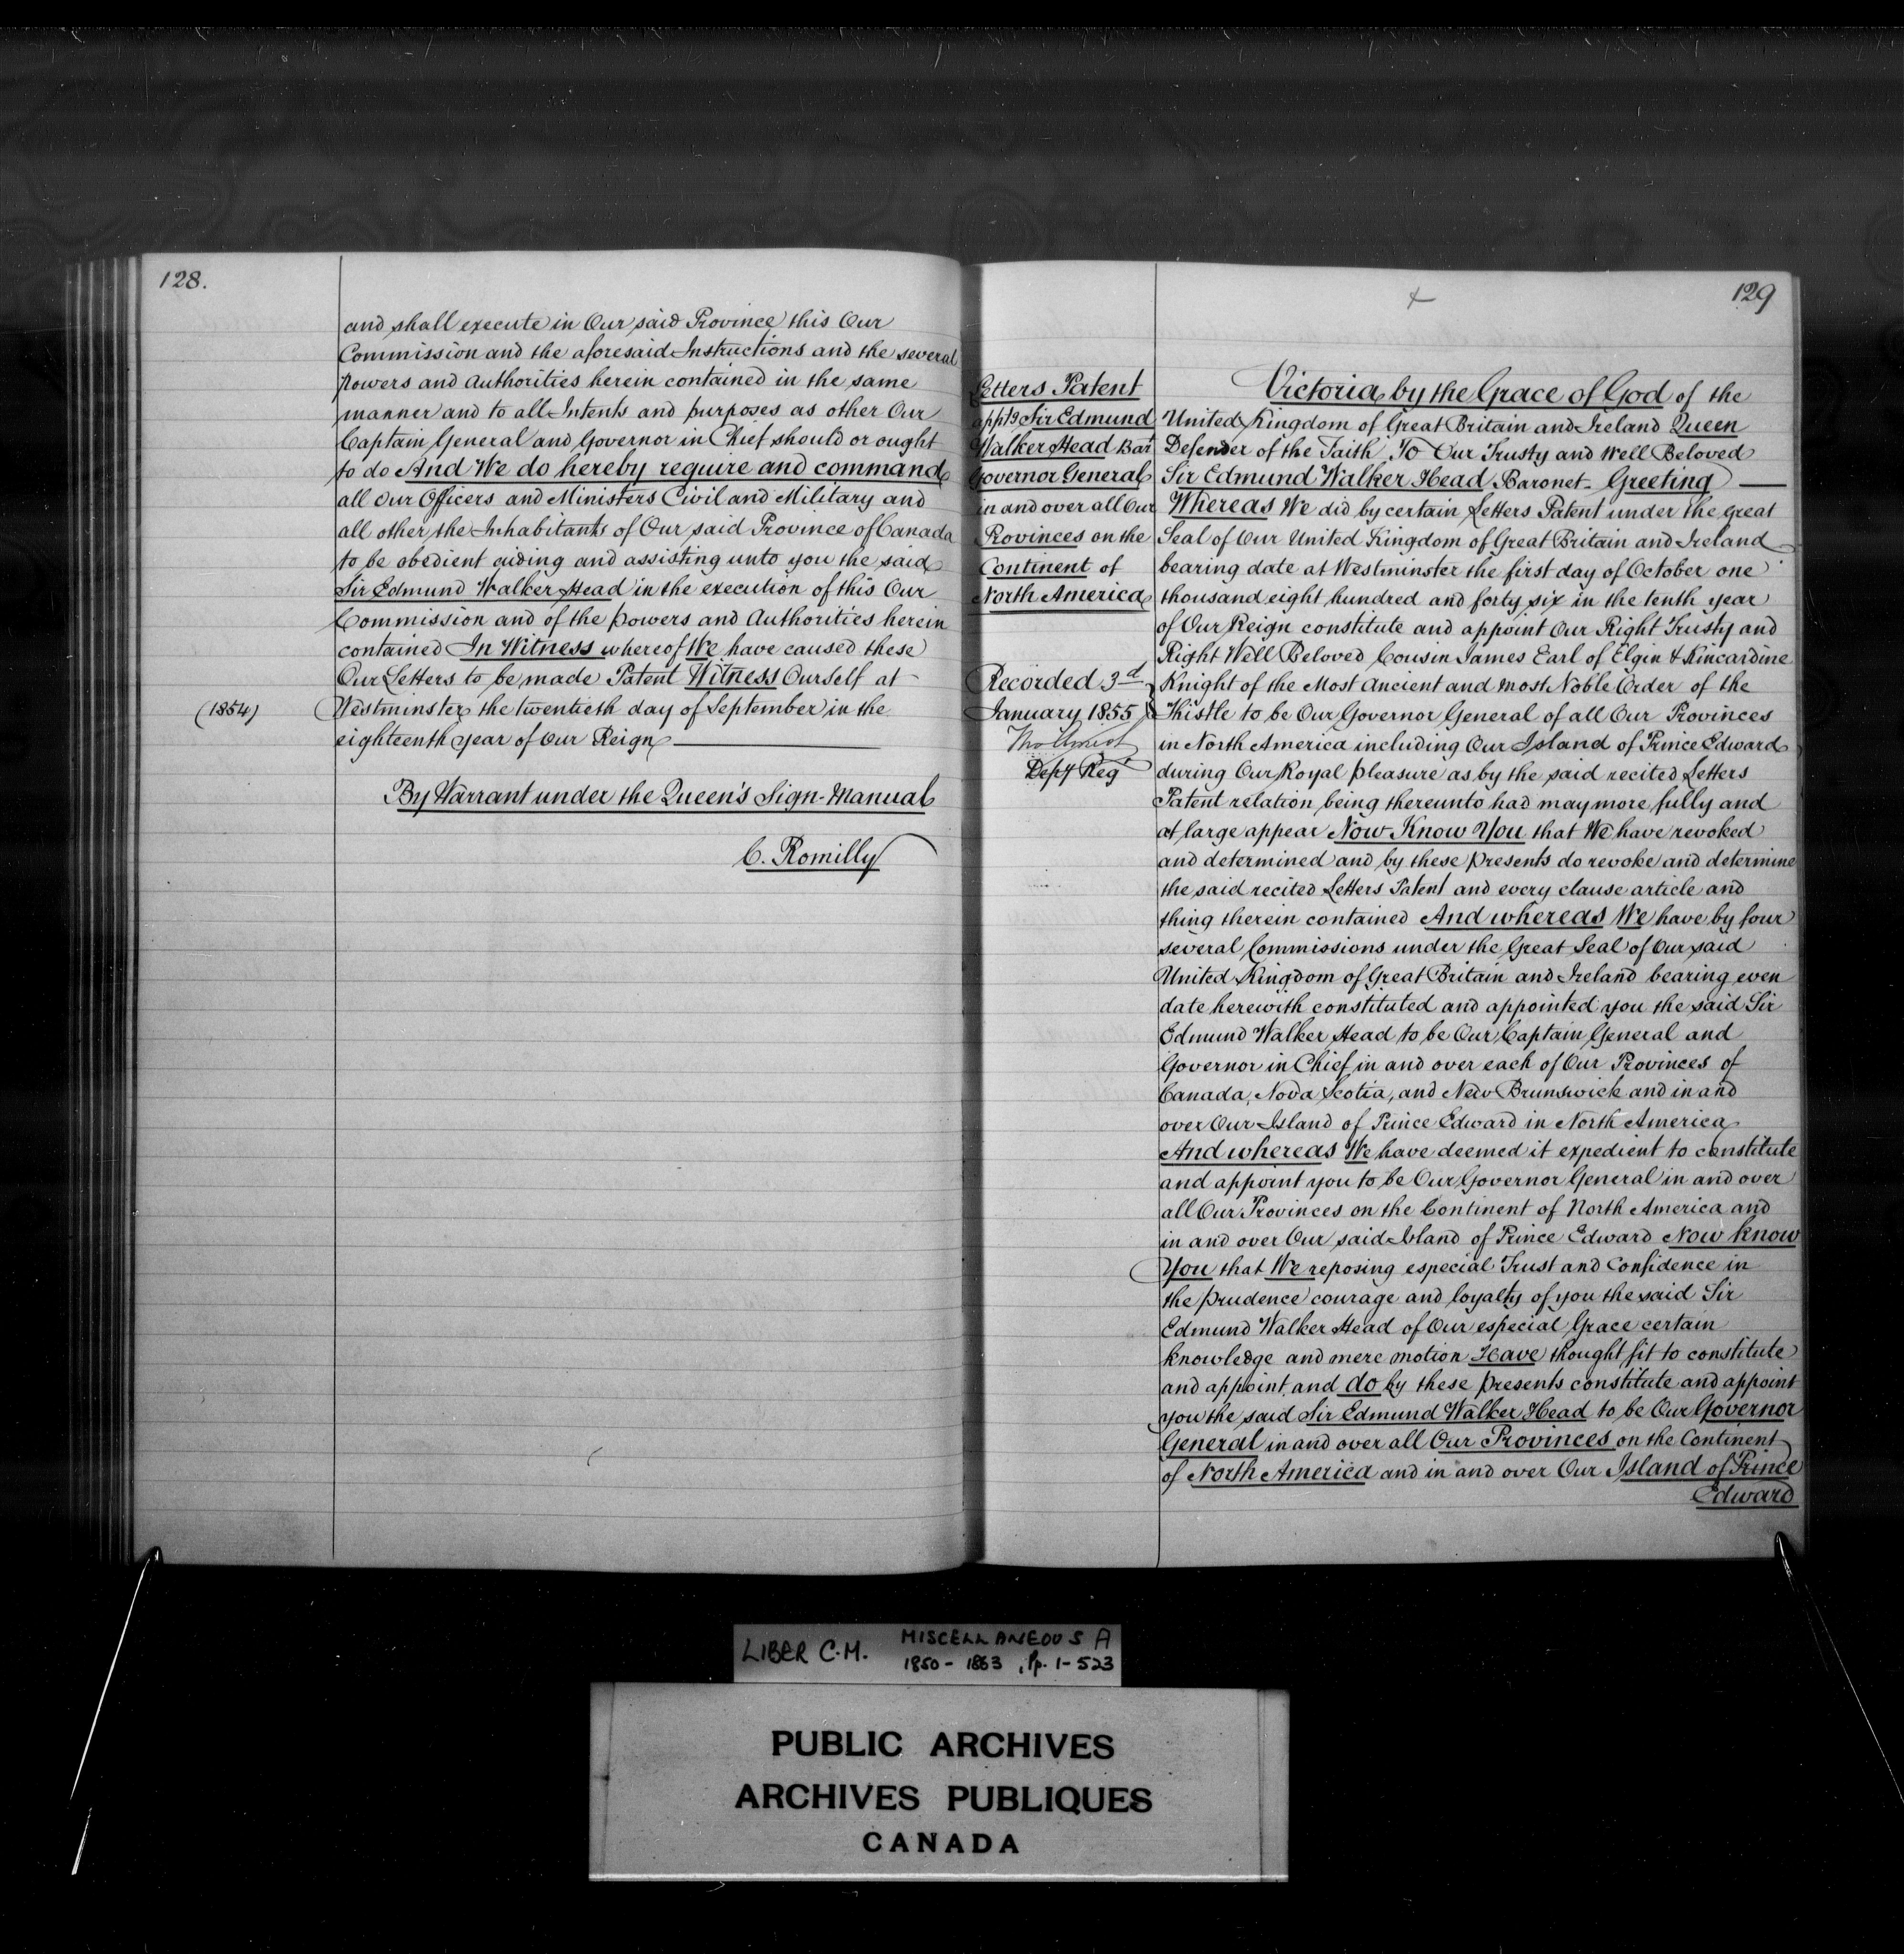 128.
and shall execute in Our said Province this Our
Commission and the aforesaid Instructions and the several
powers and Authorities herein contained in the same
manner and to all Intents and purposes as other Our
Captain General and Governor in Chief should or ought
to do And We do hereby require and command
all Our Officers and Ministers Civil and Military and
all other the Inhabitants of Our said Province of Canada
to be obedient aiding and assisting unto you the said
Sir Edmund Walker Head in the execution of this Our
Commission and of the powers and Authorities herein
contained In Witness whereof We have caused these
Our Letters to be made Patent Witness Ourself at
(1854)
Westminster the twentieth day of September in the
eighteenth year of Our Reign
By Warrant under the Queen's Sign-Manual
C. Romilly
129
Letters Patent
apptg Sir Edmund
Walker Head Bart
Governor General
in and over all Our
Provinces on the
Continent of
North America
Recorded 3d
January 1855
Depy Reg
Victoria by the Grace of God of the
United Kingdom of Great Britain and Ireland Queen
Defender of the Faith To Our Trusty and Well Beloved
Sir Edmund Walker Head Baronet Greeting
Whereas We did by certain Letters Patent under the great
Seal of Our United Kingdom of Great Britain and Ireland
bearing date at Westminster the first day of October one
thousand eight hundred and forty six in the tenth year
of Our Reign constitute and appoint Our Right Trusty and
Right Well Beloved Cousin James Earl of Elgin & Kincardine
Knight of the Most Ancient and Most Noble Order of the
Thistle to be Our Governor General of all Our Provinces
in North America including Our Island of Prince Edward
during Our Royal pleasure as by the said recited Letters
Patent relation being thereunto had may more fully and
at large appear Now Know You that We have revoked
and determined and by these presents do revoke and determine
the said recited Letters Patent and every clause article and
thing therein contained And whereas We have by four
several Commissions under the Great Seal of Our said
United Kingdom of Great Britain and Ireland bearing even
date herewith constituted and appointed you the said Sir
Edmund Walker Head to be Our Captain General and
Governor in Chief in and over each of Our Provinces of
Canada, Nova Scotia, and New Brunswick and in and
over Our Island of Prince Edward in North America
And whereas We have deemed it expedient to constitute
and appoint you to be Our Governor General in and over
all Our Provinces on the Continent of North America and
in and over Our said Island of Prince Edward Now know
You that We reposing especial Trust and Confidence in
the prudence courage and loyalty of you the said Sir
Edmund Walker Head of Our especial Grace certain
knowledge and mere motion Have thought fit to constitute
and appoint and do by these presents constitute and appoint
you the said Sir Edmund Walker Head to be Our Governor
General in and over all Our Provinces on the Continent
of North America and in and over Our Island of Prince
Edward
LIBER C.M. MISCELLANEOUS A
1850 - 1863, Pp. 1-523
PUBLIC ARCHIVES
ARCHIVES PUBLIQUES
CANADA